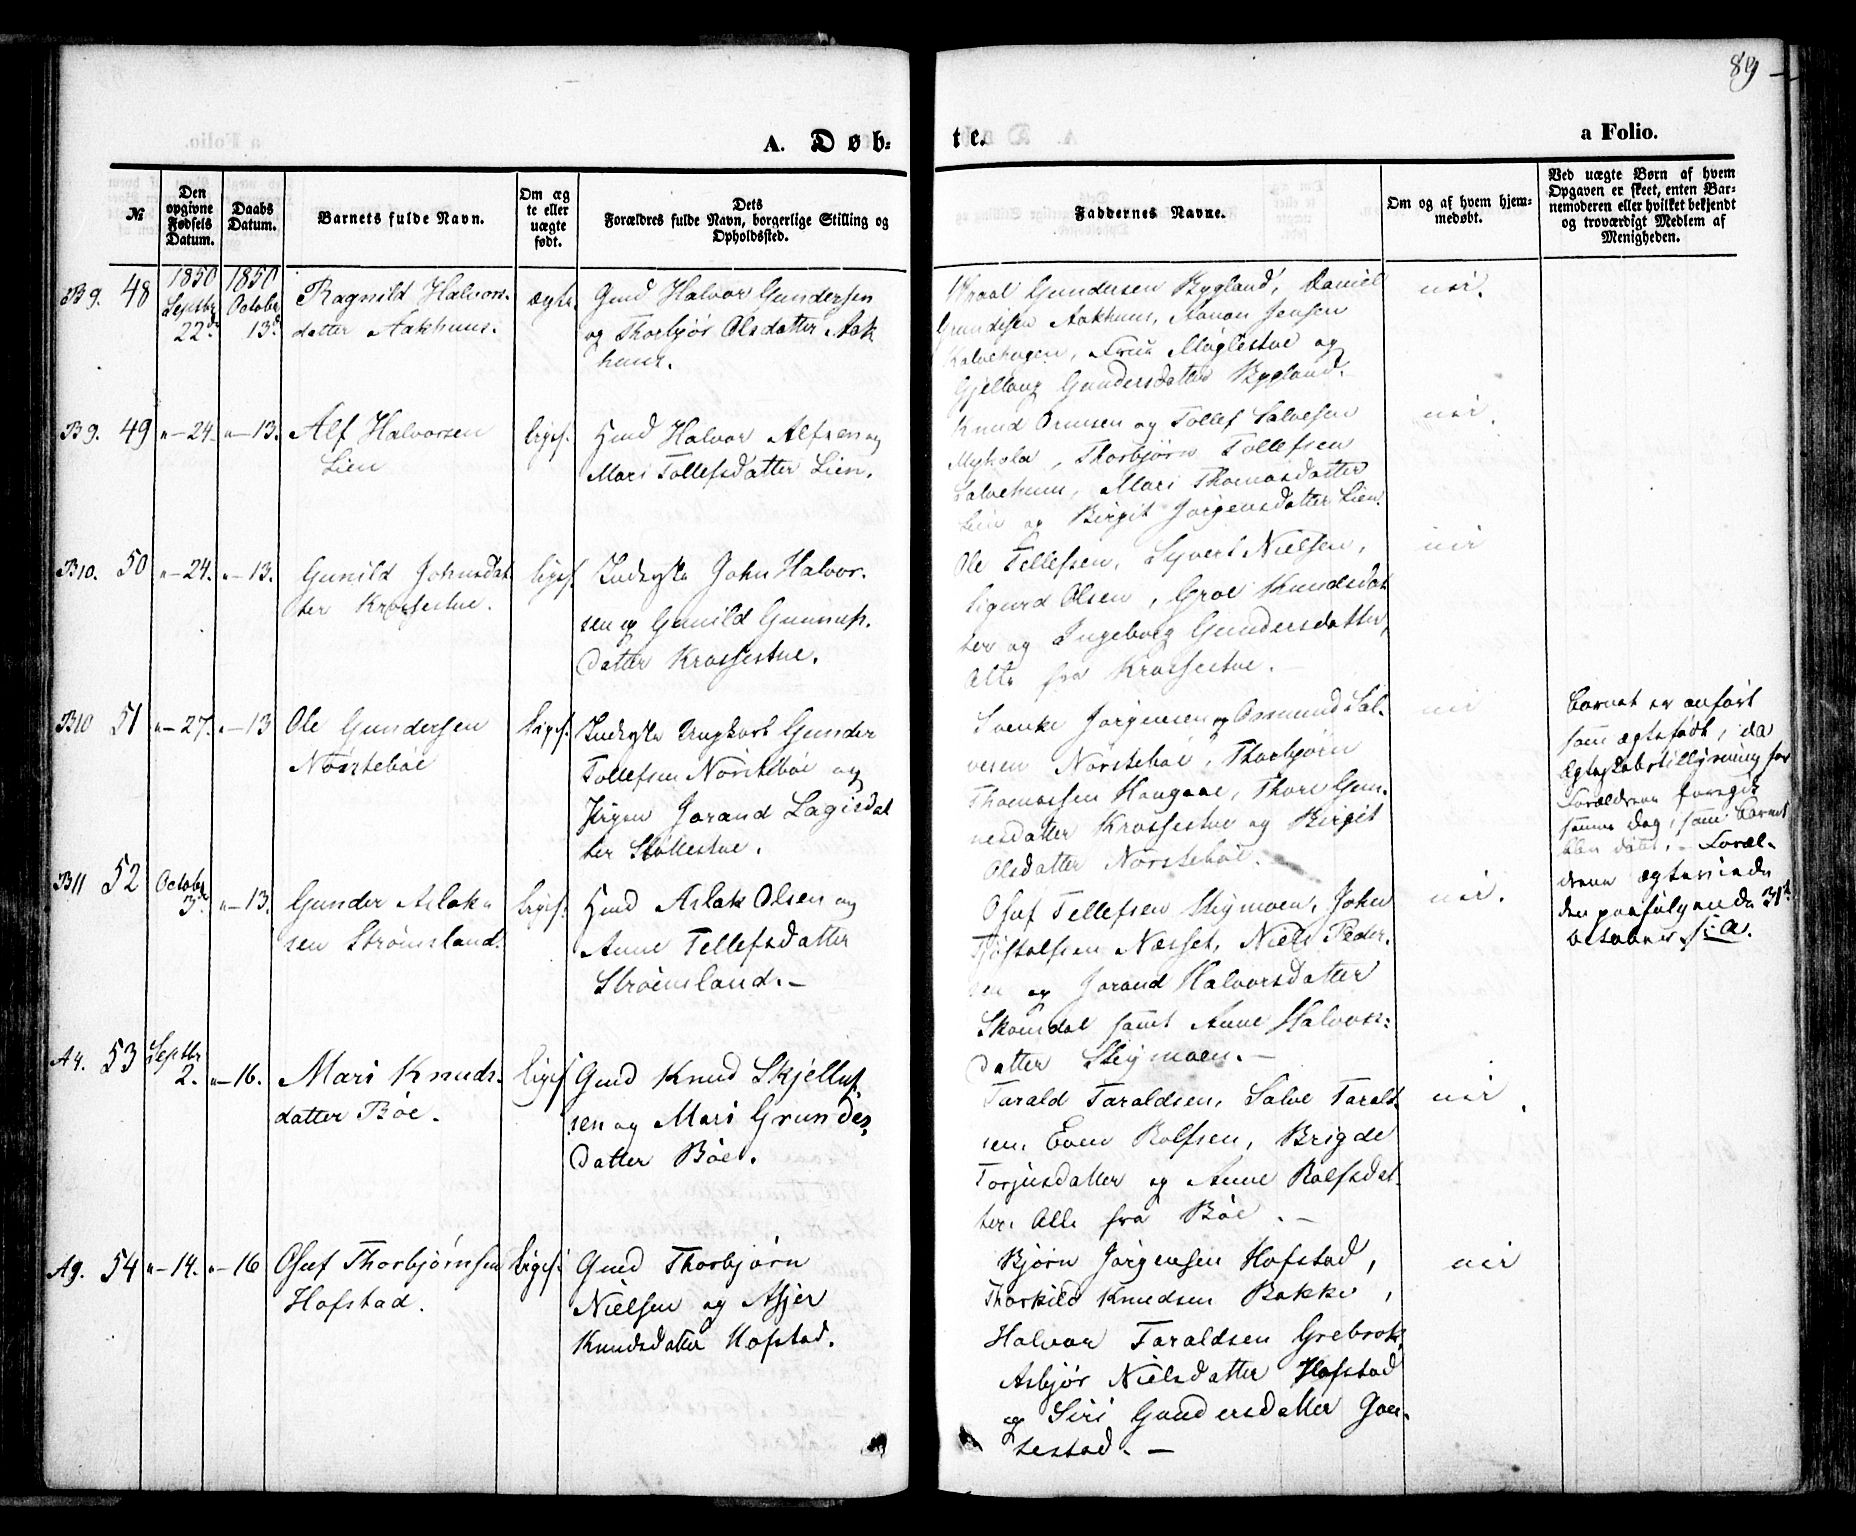 89
A. Døb-
te.
a Folio.
№
Den opgivne Fødsels Datum.
Daabs Datum.
Barnets fulde Navn.
Om ægte eller uægte født.
Dets
Forældres fulde Navn, borgerlige Stilling og
Opholdssted.
Faddernes Navne.
Om og af hvem hjem-
medøbt.
Ved uægte Børn af hvem
Opgaven er skeet, enten Bar-
nemoderen eller hvilket bekjendt
og troværdigt Medlem af
Menigheden.
B9. 48
1850 Septbr 22d
1850 Octobr 13d
Ragnild Halvors-
datter Aakhuus.
ægte.
Gmd Halvor Gundersen
og Thorbjør Olsdatter Aak
huus.
Gundersen Bygland, Daniel
Gundersen Aakhuus, Jensen
og
Gundersdatter Bygland.
nei.
B9. 49
"-24.
"-13.
Alf Halvorsen
Lien
liges.
Hmd Halvor Alfsen og
Mari Tollefsdatter Lien.
Knud Ormsen og Tollef Salvesen
Thorbjørn Tollefsen
Mari Thomasdatter
Lien og Birgit Jørgensdatter Lien.
nei.
B10. 50
"-24.
"-13.
Gunild Johnsdat
ter Krossestue.
liges.
Inderste John Halvor-
sen og Gunild Gunnufs-
datter Krossestue.
Ole Tellefsen, Syvert Nielsen,
Sigurd Olsen, Groe Knudsdat
ter og Ingeborg Gundersdatter,
Alle fra Krossestue.
nei
B10 51
"-27.
"-13
Ole Gundersen
Norstebøe
ligef.
Inderste Ungkarl Gunder
Tollefsen Norstebøe og
Pigen Jorand Lagisdat
ter Stallestue.
Svenke Jørgensen og Osmund Sal-
vesen Norstebøe, Thorbjørn
Thomassen Haugaae, Thore Gun-
nesdatter Krossestue og Birgit
Olsdatter Norstebøe.
nei
Barnet er anført
som ægtefødt, da
Ægteskabstillysning for
Forældrene foregik
samme Dag, som Barnet
blev døbt. - Foræl-
drene ægteviede
den paafølgende 31te
October s. A.
B11 52
Octobr 3d
"-13.
Gunder Aslak-
sen Strømsland.
ligef.
Hmd Aslak Olsen og
Anne Tellefsdatter
Strømsland. -
Oluf Tellefsen Stigmoen, John
Tjøstolfsen Næsset, Niels Peder-
sen og Jorand Halvorsdatter
Skomedal samt Anne Halvors-
datter Stigmoen. -
nei.
A4. 53
Septbr 2.
"-16.
Mari Knuds-
datter Bøe.
ligef
Gmd Knud Skjelluf
sen og Mari Grundes-
datter Bøe.
Tarald Taraldsen, Salve Taralt
sen, Even Rolfsen, Brigde
Torjusdatter og Anne Rolfsdat-
ter, Alle fra Bøe. -
nei
A9. 54
"-14.
"-16
Oluf Thorbjørnsen
Hofstad.
ligef.
Gmd Thorbjørn
Nielsen og Asjer
Knudsdatter Hofstad.
Bjørn Jørgensen Hofstad,
Thorkild Knudsen Bakke,
Halvor Taraldsen Grebrok,
Asbjør Nielsdatter Hofstad
og Siri Gundersdatter Goe-
testad. -
nei